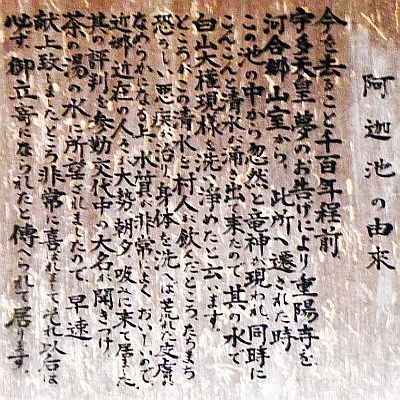 阿迦池の由来
今を去ること千百年程前
宇多天皇夢のお告げにより重陽寺を
河合郷山室から、此所へ遷された時
この池の中から忽然と竜神が現われ同時に
こんこんと清水が涌き出て来たので、其の水で
白山大権現様を洗い浄めたと云います。
ところがこの清水を村人に飲んだところたちまち
恐ろしい悪疫が治り身体を洗へば荒れた皮膚が
なめらかになる上水質が非常によくおいしいので
近郷近在の人々が大勢朝夕吸みに来て居ました
其の評判を参勤交代中の大名に聞きつけ
茶の湯の水に所望されましたので早速
献上致しましたところ非常に喜ばれましてそれ以合は
必ず御立寄になられたと傳へられて居ります